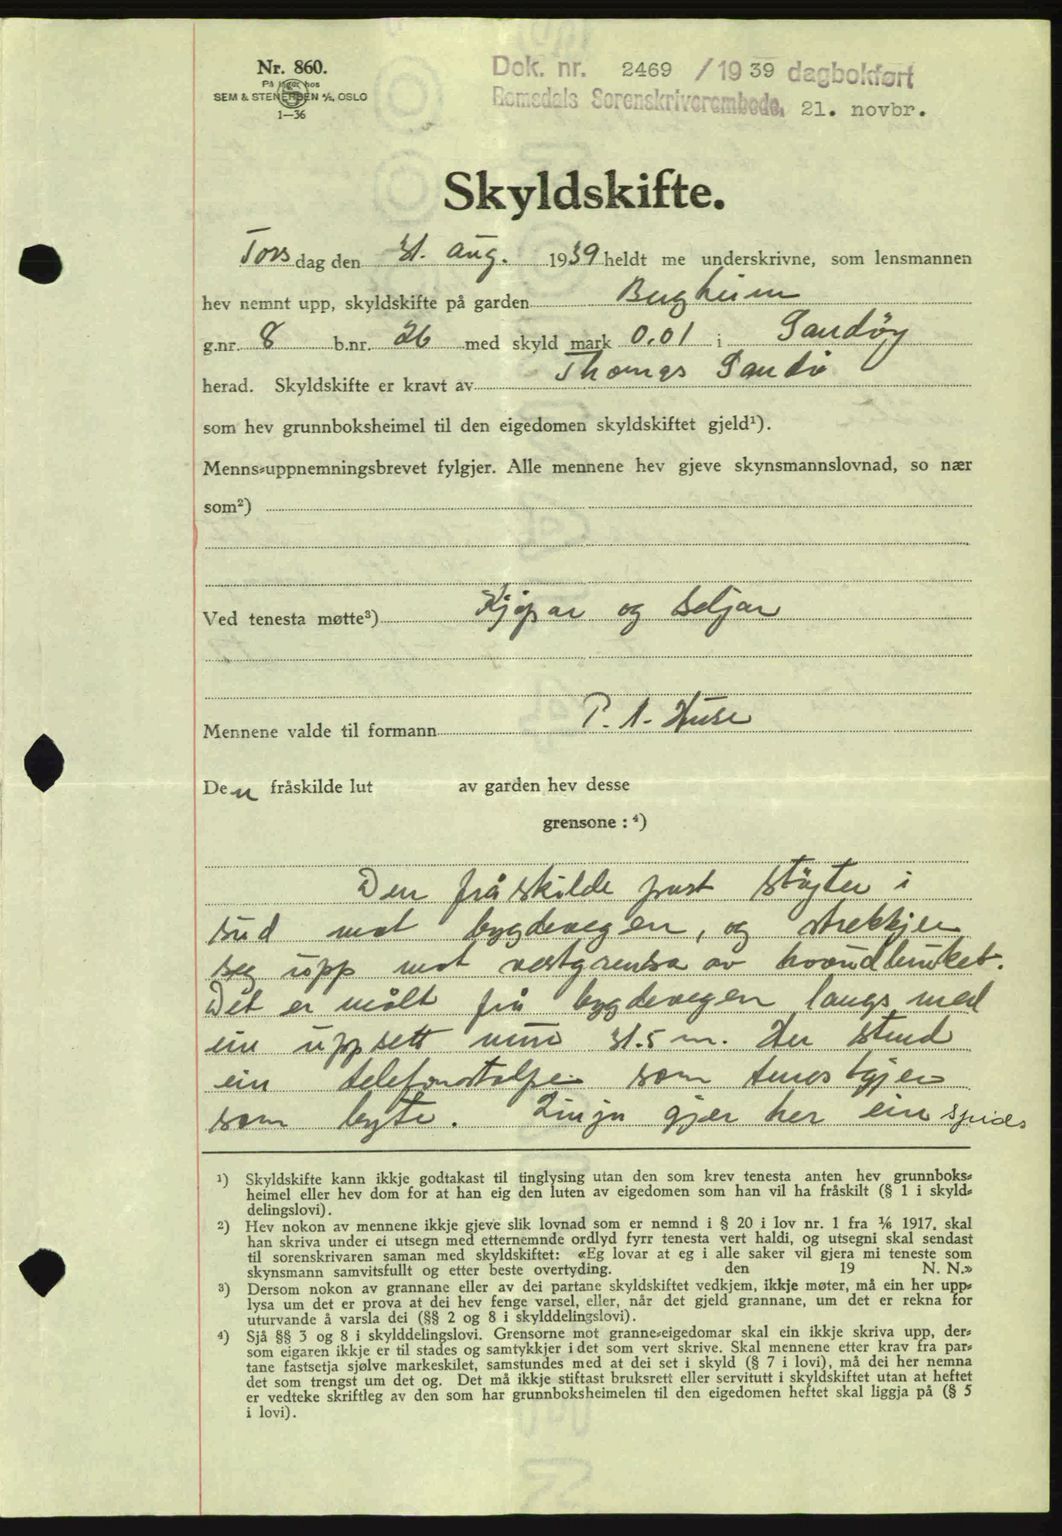 Nr. 860.
På lager hos
SEM & STENERSEN A/S, OSLO
1—36
Dok. nr. 2469 / 1939 dagbokført
Romsdals Sorenskriverembede, 21. novbr.
Skyldskifte.
Torsdag den 31. aug. 1939 heldt me underskrivne, som lensmannen
hev nemnt upp, skyldskifte på garden Bergheim
g.nr. 8 b.nr. 26 med skyld mark 0,01 i Sandøy
herad. Skyldskifte er kravt av Thomas Sandø
som hev grunnboksheimel til den eigedomen skyldskiftet gjeld¹).
Menns-uppnemningsbrevet fylgjer. Alle mennene hev gjeve skynsmannslovnad, so nær
som²)
Ved tenesta møtte³) Kjøpar og seljar
Mennene valde til formann P. A. Huse
Den fråskilde lut av garden hev desse
grensone : ⁴)
Den fråskilde part støyter i
sud mot bygdevegen, og strekkjer
seg upp mot vestgrensa av hovudbruket.
Det er målt frå bygdevegen langs med
ein uppsett mur 31.5 m. Her stend
ein telefonstolpe som
som byte. Linja gjer her ein spids
¹) Skyldskifte kann ikkje godtakast til tinglysing utan den som krev tenesta anten hev grunnboks-
heimel eller hev dom for at han eig den luten av eigedomen som han vil ha fråskilt (§ 1 i skyld-
delingslovi).
²) Hev nokon av mennene ikkje gjeve slik lovnad som er nemnd i § 20 i lov nr. 1 fra 1/6 1917, skal
han skriva under ei utsegn med etternemnde ordlyd fyrr tenesta vert haldi, og utsegni skal sendast
til sorenskrivaren saman med skyldskiftet: «Eg lovar at eg i alle saker vil gjera mi teneste som
skynsmann samvitsfullt og etter beste overtyding. den 19 N. N.»
³) Dersom nokon av grannane eller av dei partane skyldskiftet vedkjem, ikkje møter, må ein her upp-
lysa um det er prova at dei hev fenge varsel, eller, når det gjeld grannane, um det er rekna for
uturvande å varsla dei (§§ 2 og 8 i skylddelingslovi).
⁴) Sjå §§ 3 og 8 i skylddelingslovi. Grensorne mot granne-eigedomar skal ein ikkje skriva upp, der-
som eigaren ikkje er til stades og samtykkjer i det som vert skrive. Skal mennene etter krav fra par-
tane fastsetja sjølve markeskilet, samstundes med at dei set i skyld (§ 7 i lovi), må dei her nemna
det som trengst um det og. Det må ikkje stiftast bruksrett eller servitutt i skyldskiftet utan at heftet
er vedteke skriftleg av den som har grunnboksheimelen til den eigedomen heftet skal liggja på (§ 5
i lovi).